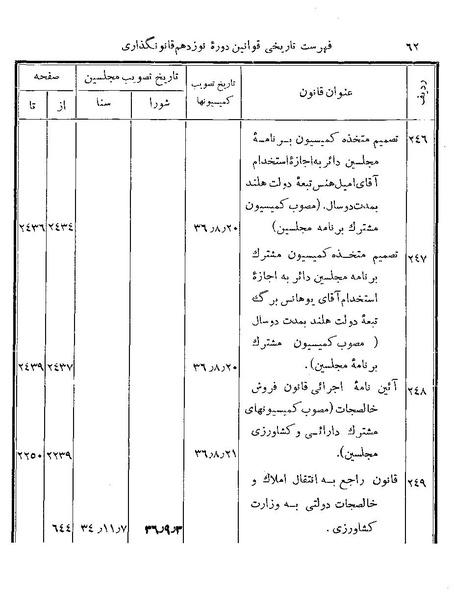 ۶۲ فهرست تاریخی قوانین دورهٔ نوزدهم قانونگذاری
ردیف عنوان قانون تاریخ تصویب کمیسیونها تاریخ تصویب مجلسین صفحه
شورا سنا از تا
۲۴۶ تصمیم متخذه کمیسیون برنامهٔ
مجلسین دائر به اجازهٔ استخدام
آقای امیل هنس تبعهٔ دولت هلند
بمدت دو سال. (مصوب کمیسیون
مشترک برنامه مجلسین) ۳۶٫۸٫۲۰ ۲۴۳۴ ۲۴۳۶
۲۴۷ تصمیم متخذه کمیسیون مشترک
برنامه مجلسین دائر به اجازهٔ
استخدام آقای یوهانس برگ
تبعهٔ دولت هلند بمدت دو سال
( مصوب کمیسیون مشترک
برنامهٔ مجلسین). ۳۶٫۸٫۲۰ ۲۴۳۷ ۲۴۳۹
۲۴۸ آئین نامهٔ اجرائی قانون فروش
خالصجات (مصوب کمیسیونهای
مشترک دارائی و کشاورزی
مجلسین). ۳۶٫۸٫۲۱ ۲۲۳۹ ۲۲۵۰
۲۴۹ قانون راجع به انتقال املاک و
خالصجات دولتی به وزارت
کشاورزی. ۳۶٫۹٫۳ ۳۴٫۱۱٫۷ ۶۴۴